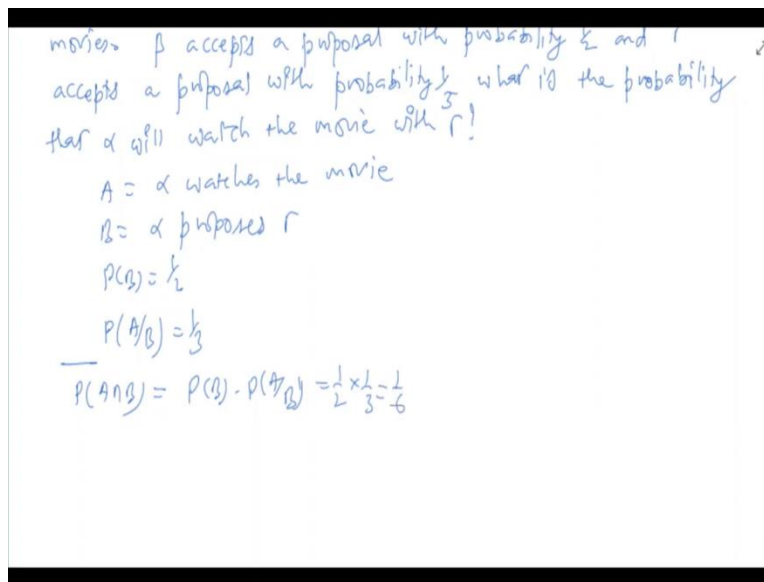 movies. β accepts a proposal with probability ½ and Γ
accepts a proposal with probability 1/3 what is the probability
that α will watch the movie with Γ?
A = α watches the movie
B = α proposes Γ
P(B) = 1/2
P(A/B) = 1/3
P(A∩B) = P(B) · P(A/B) = 1/2 × 1/3 = 1/6